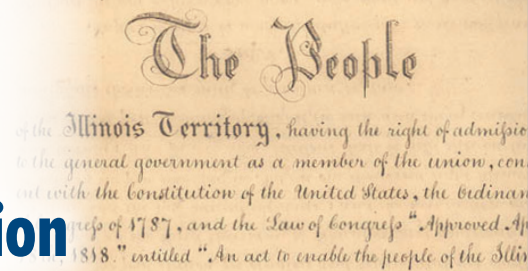 The People
of the Illinois Territory, having the right of admissio
to the general government as a member of the union, con
ent with the Constitution of the United States, the Ordinan
ngress of 1787, and the Law of Congress "Approved Ap
1818." entitled "An act to enable the people of the Illi
ion